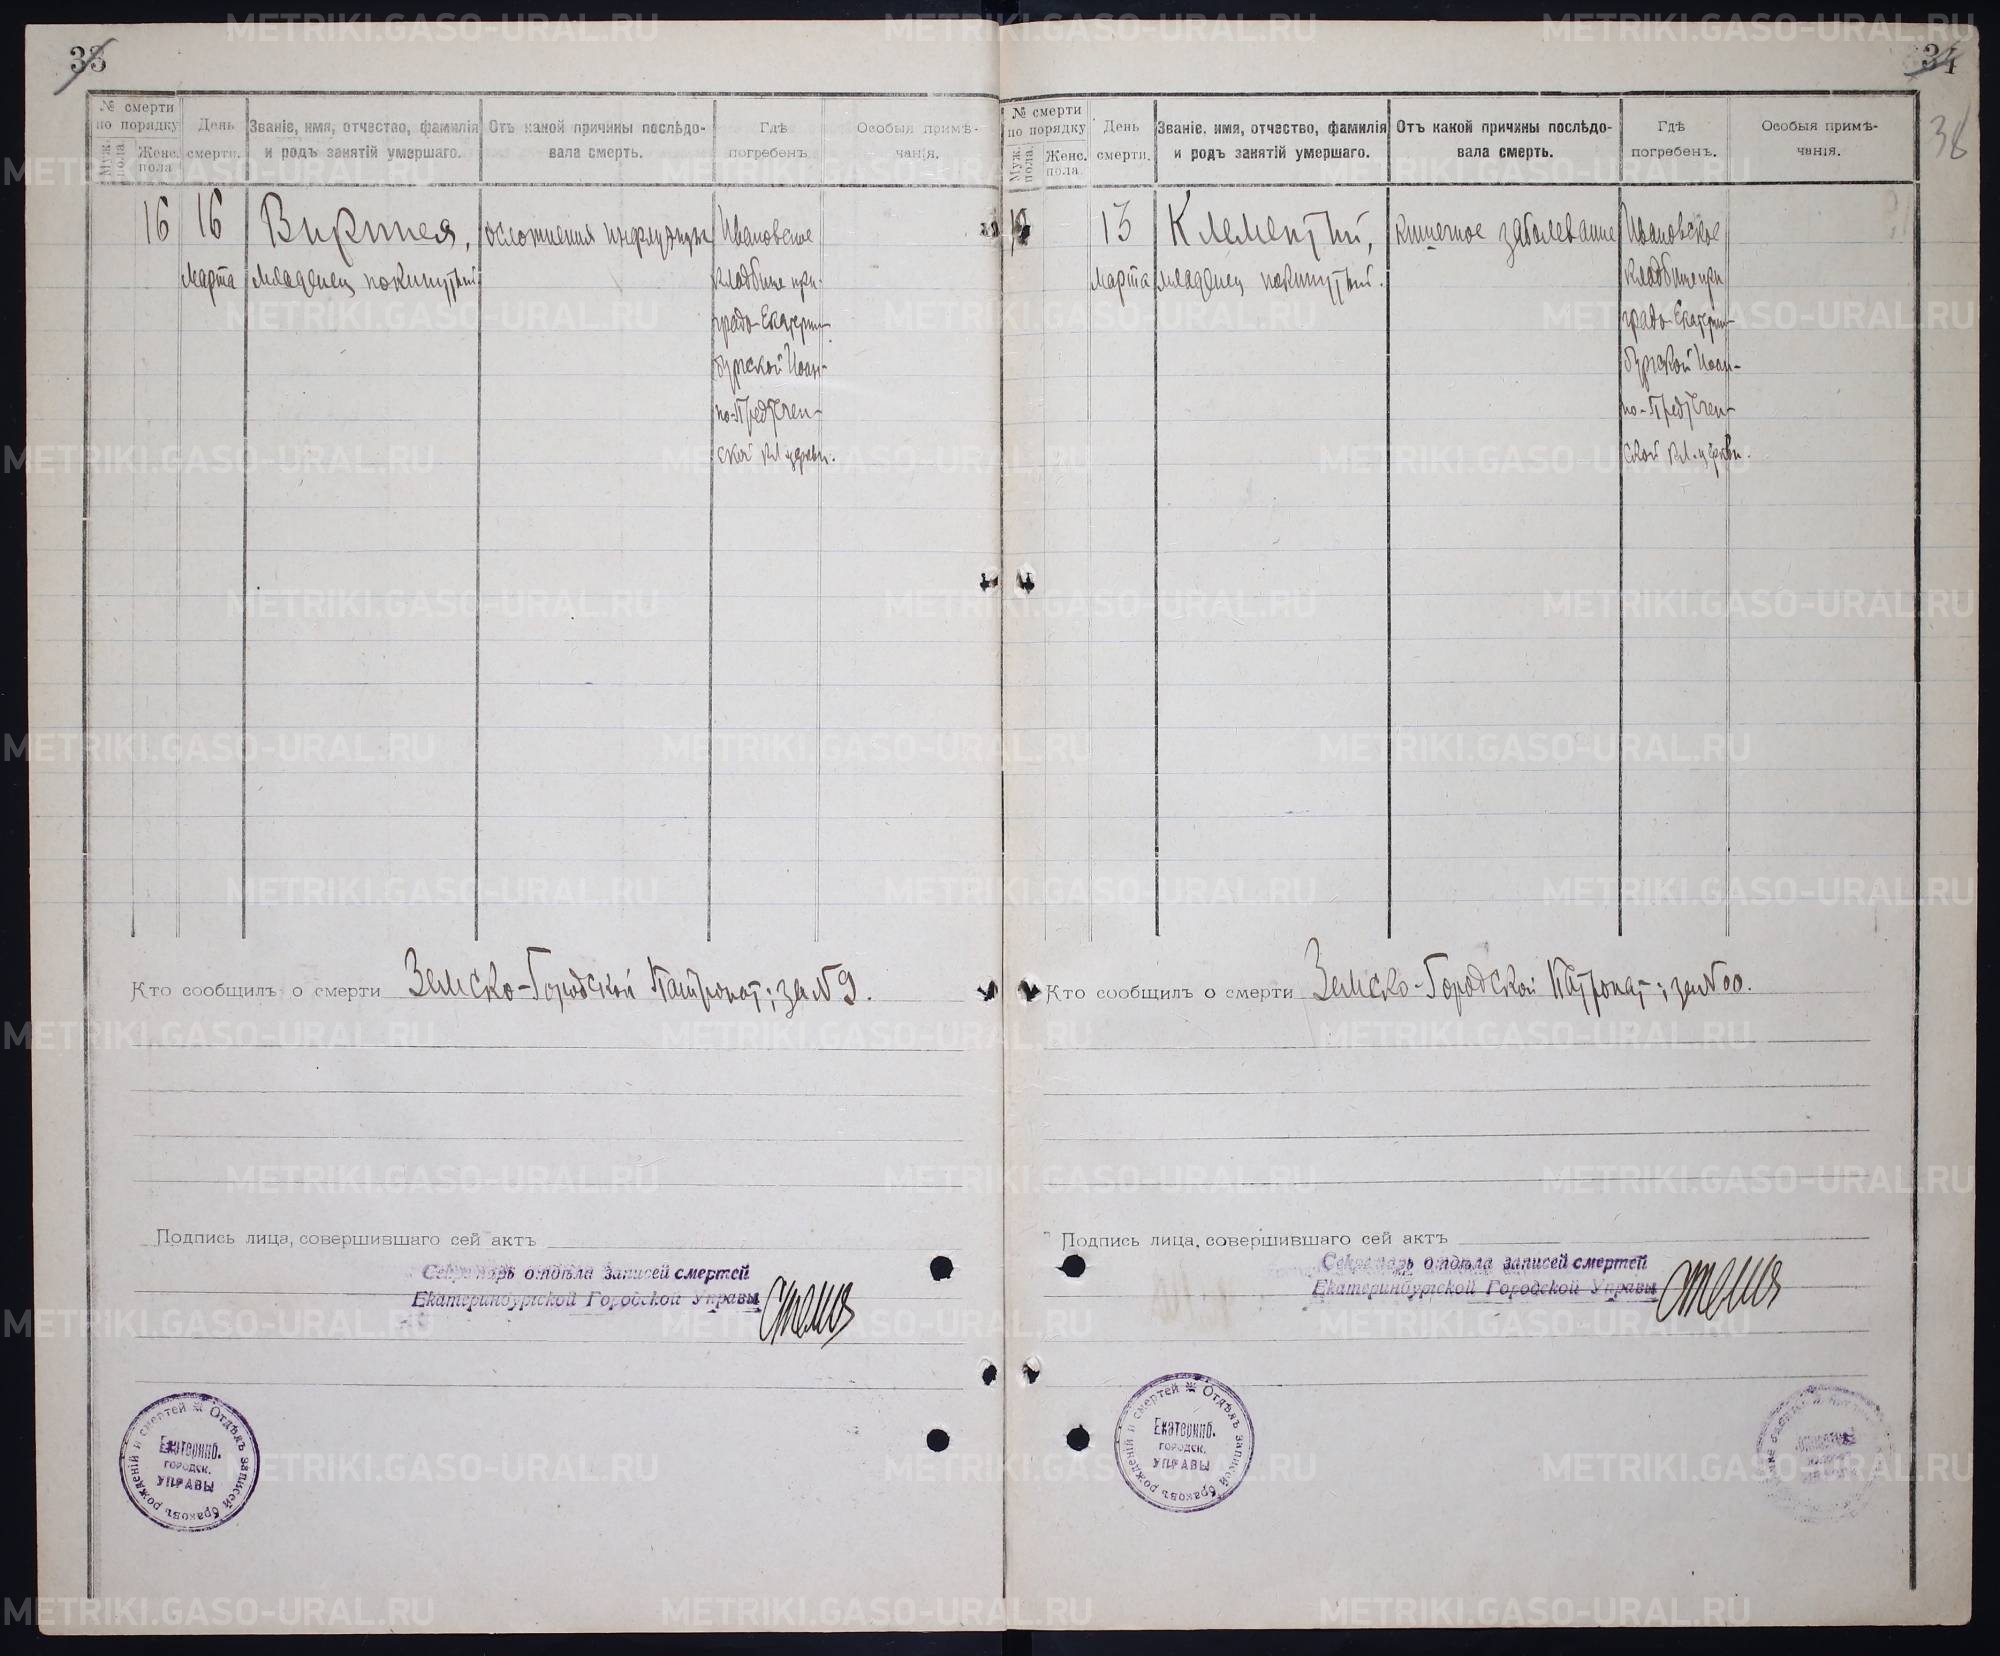 33
№ смерти по порядку
Муж. пола.
Женс. пола
День смерти.
Званіе, имя, отчество, фамилія и родъ занятій умершаго.
Отъ какой причины послѣдовала смерть.
Гдѣ погребенъ
Особыя примѣчанія.
16
16
Марта
Виринея,
младенец покинутый
осложнения инфлуэнции
Ивановское
кладбище при
градо-Екатерин-
бургской Иоан-
но-Предтечен-
ской кл. церкви.
Кто сообщилъ о смерти Земско-Городской Патронат; за № 9.
Подпись лица, совершившаго сей актъ
Секретарь отдѣла записей смертей
Екатеринбургской Городской Управы
Отдѣлъ записей браковъ рожденій и смертей
Екатеринб.
городск.
УПРАВЫ
34
38
№ смерти по порядку
Муж. пола.
Женс. пола.
День смерти.
Званіе, имя, отчество, фамилія и родъ занятій умершаго.
Отъ какой причины послѣдовала смерть.
Гдѣ погребенъ.
Особыя примѣчанія.
13
Марта
Клементий,
младенец покинутый.
кишечное заболевание
Ивановское
кладбище при
градо-Екатерин-
бургской Иоан-
но-Предтечен-
ской кл. церкви.
Кто сообщилъ о смерти Земско-Городской Патронат; за №
Подпись лица, совершившаго сей актъ
Секретарь отдѣла записей смертей
Екатеринбургской Городской Управы
Отдѣлъ записей браковъ рожденій и смертей
Екатеринб.
городск.
УПРАВЫ
METRIKI.GASO-URAL.RU